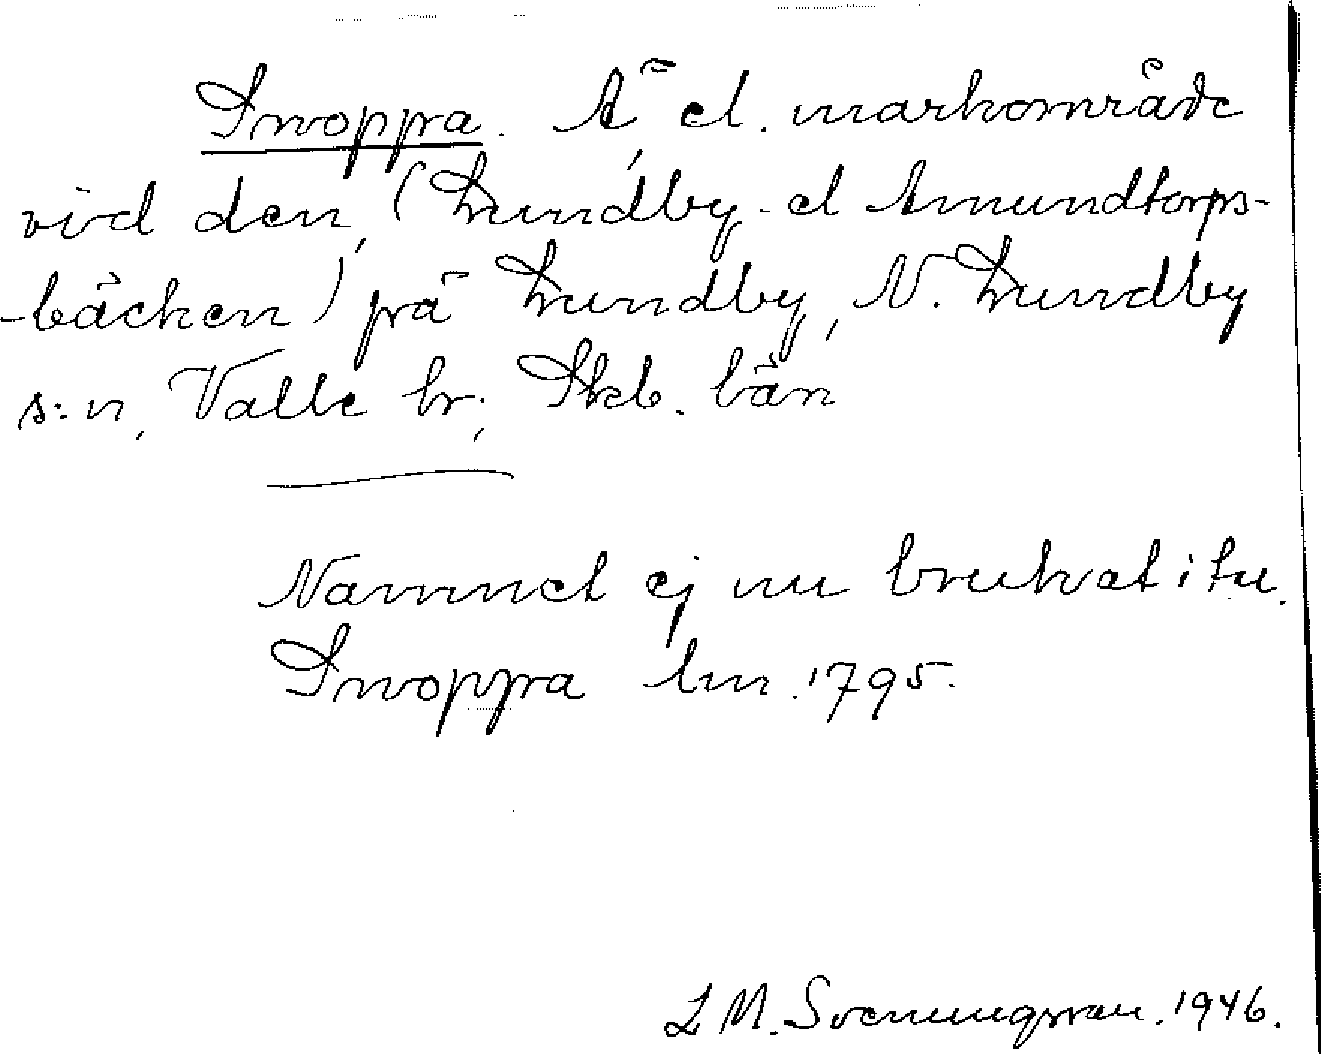 Snoppra. Å el. markområde
vid den, (Lundby- el Amundtorps-
-bäcken) på Lundby, N. Lundby
s:n, Valle hr, Skb. län
Namnet ej nu brukat i tu.
Snoppra lm. 1795.
L M. Svenungsson. 1946.